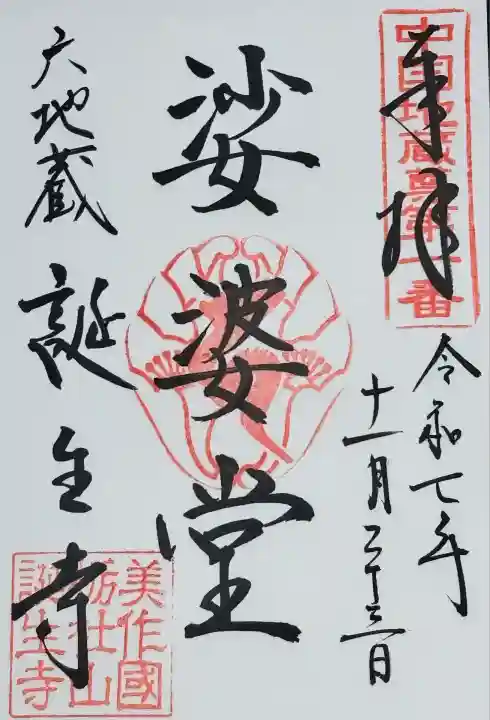 中国地蔵尊第一番
奉拝
令和七年
十一月二十三日
娑婆堂
六地蔵
誕生寺
美作國
栃社山
誕生寺